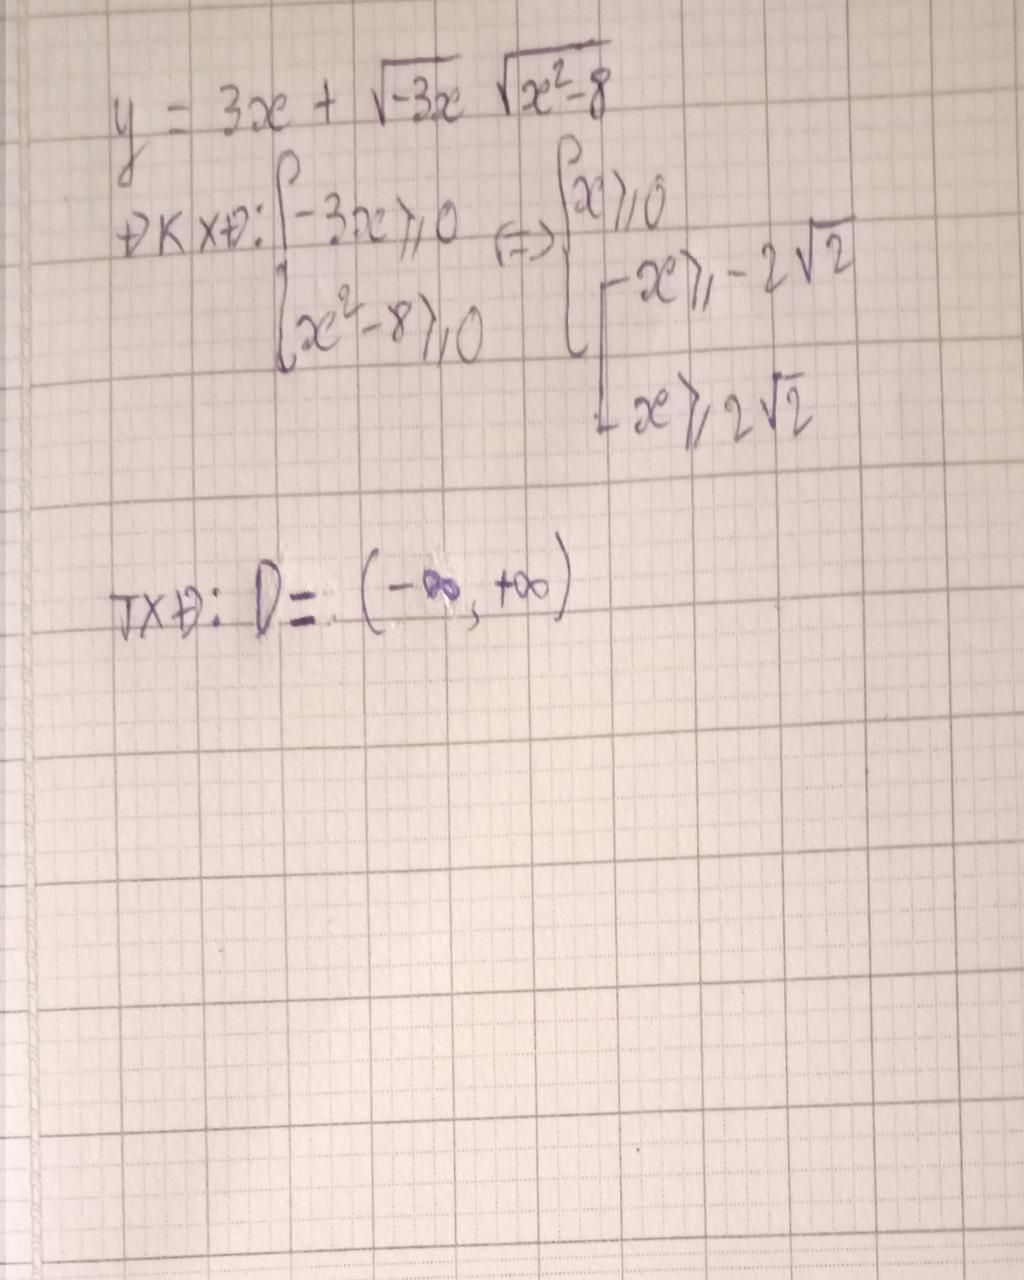 y = 3x + √-3x √x²-8
ĐKXĐ: { -3x ⩾ 0 ⇔ { x ⩾ 0
x² - 8 ⩾ 0 [ x ⩾ -2√2
x ⩾ 2√2
TXĐ: D = (-∞, +∞)